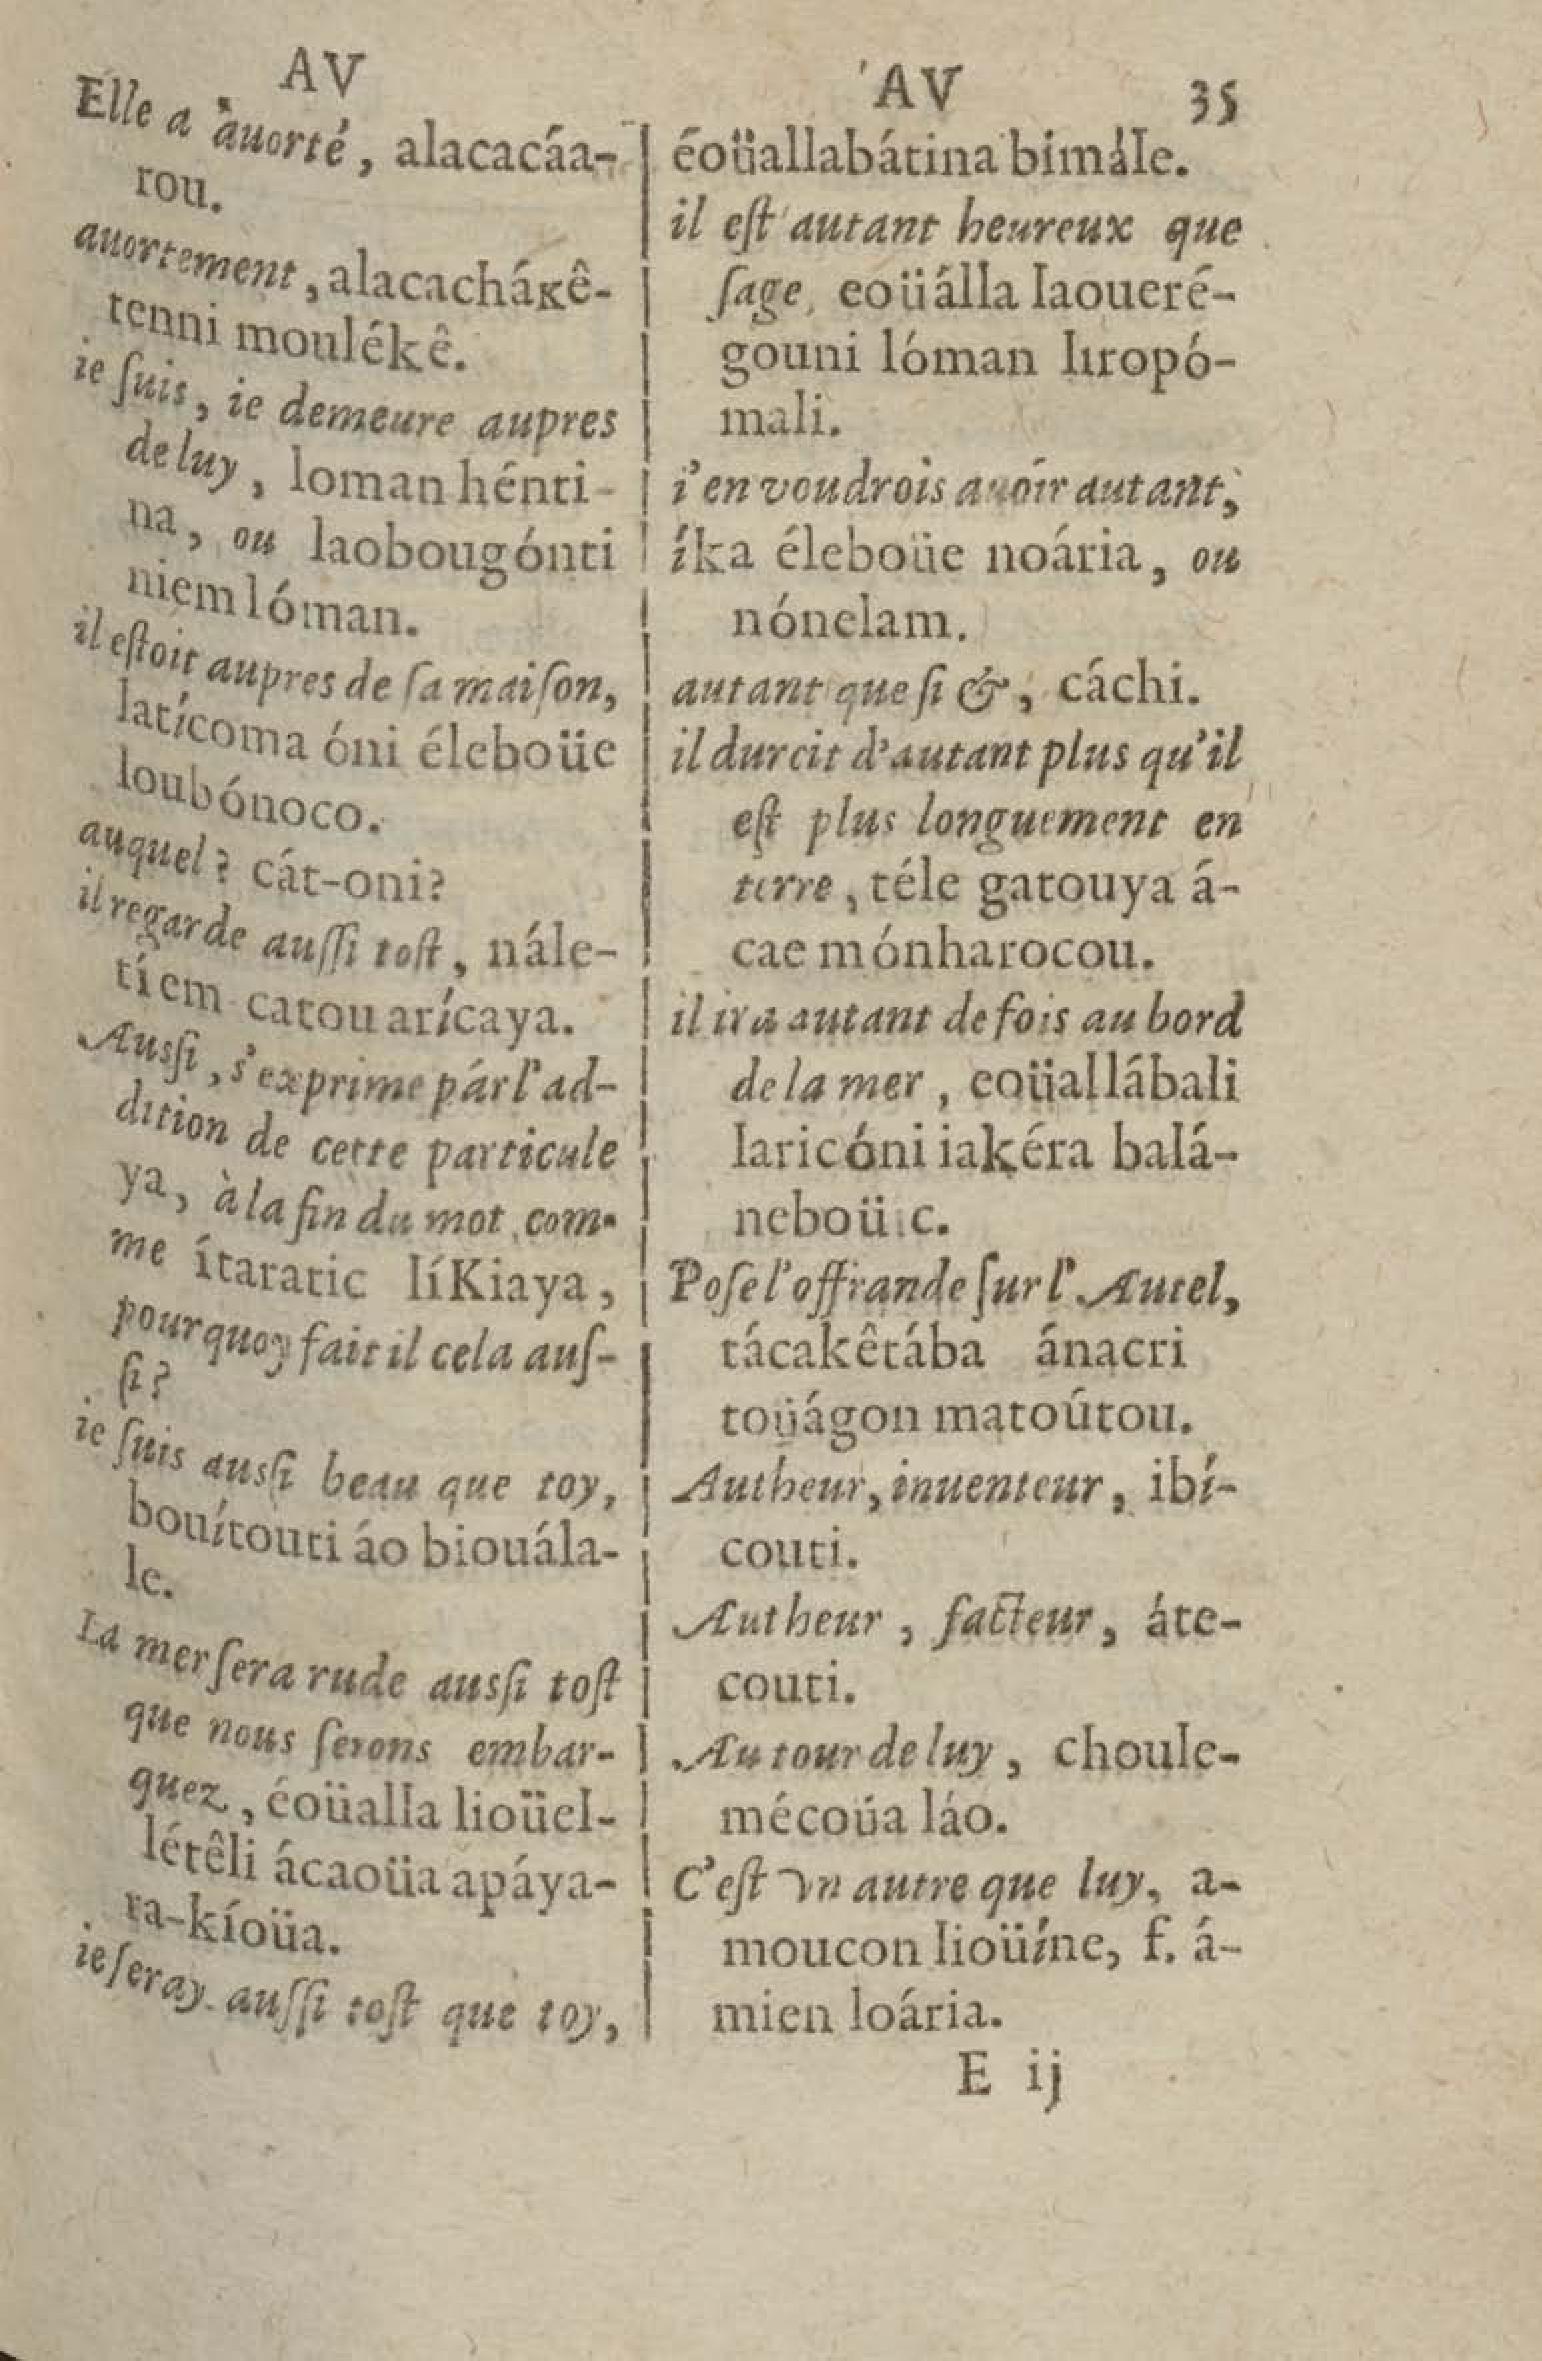 AV
Elle a auorté, alacacáa-
rou.
auortement, alacachákê-
tenni moulékê.
ie ſuis, ie demeure aupres
de luy, loman hénti-
na, ou laobougónti
niem lóman.
il eſtoit aupres de ſa maiſon,
latícoma óni éleboüe
loubónoco.
auquel? cát-oni?
il regarde auſſi toſt, nále-
tíem catou arícaya.
Ausſi, s'exprime par l'ad-
dition de cette particule
ya, à la fin du mot, com-
me ítaratic líKiaya,
pourquoy fait il cela auſ-
ſi?
ie ſuis ausſi beau que toy,
bouítouti áo biouála-
le.
La mer ſera rude ausſi toſt
que nous ſerons embar-
quez, éoüalla lioüel-
létêli ácaoüa apáya-
ra-kíoüa.
ie ſeray auſſi toſt que toy,
AV 35
éoüallabátina bimále.
il eſt autant heureux que
ſage, eoüálla laoueré-
gouni lóman liropó-
mali.
i'en voudrois auoir autant,
íka éleboüe noária, ou
nónelam.
autant que ſi &, cáchi.
il durcit d'autant plus qu'il
eſt plus longuement en
terre, téle gatouya á-
cae mónharocou.
il ira autant de fois au bord
de la mer, eoüallábali
laricóni iakéra balá-
neboüic.
Poſe l'offrande ſur l'Autel,
tácakêtába ánacri
toüágon matoútou.
Autheur, inuenteur, ibí-
couti.
Autheur, facteur, áte-
couti.
Autour de luy, choule-
mécoüa láo.
C'eſt vn autre que luy, a-
moucon lioüíne, f. á-
mien loária.
E ij